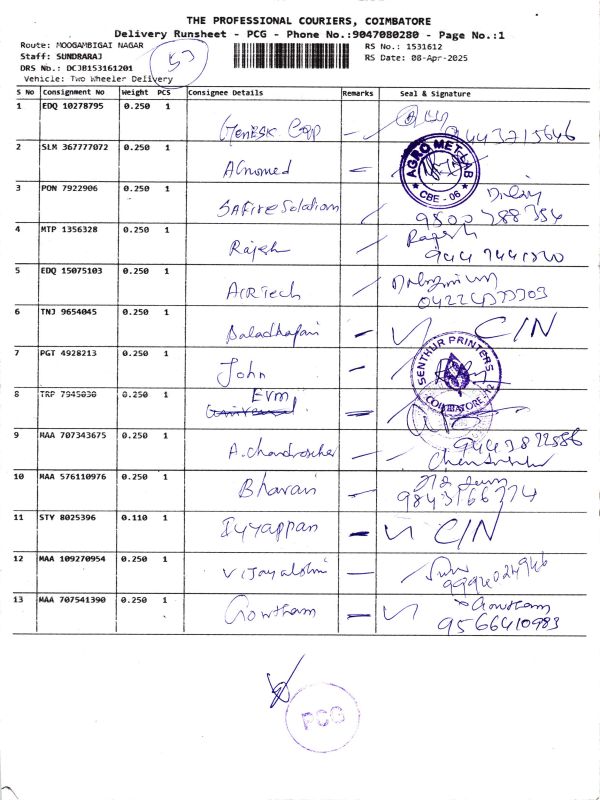 THE PROFESSIONAL COURIERS, COIMBATORE
Delivery Runsheet - PCG - Phone No.:9047080280 - Page No.:1
Route: MOOGAMBIGAI NAGAR
Staff: SUNDRARAJ
DRS No.: DCJB153161201
Vehicle: Two Wheeler Delivery
53
RS No.: 1531612
RS Date: 08-Apr-2025
S No Consignment No Weight PCS Consignee Details Remarks Seal & Signature
1 EDQ 10278795 0.250 1
9443715646
2 SLM 367777072 0.250 1 Agromed
AGRO MET-LAB
CBE - 06
3 PON 7922906 0.250 1 SAFire Solations
4 MTP 1356328 0.250 1 Rajesh Rajesh
5 EDQ 15075103 0.250 1 AIRTech
6 TNJ 9654045 0.250 1 C/N
7 PGT 4928213 0.250 1 John
SENTHUR PRINTERS
COIMBATORE-12
8 TRP 7945030 0.250 1 EVM
9 MAA 707343675 0.250 1 A.Chandrosekar 9443822586
10 MAA 576110976 0.250 1 Bhavani
9843166774
11 STY 8025396 0.110 1 Iyyappan C/N
12 MAA 109270954 0.250 1 Vijayalshmi
9994024946
13 MAA 707541390 0.250 1 Gowtham Gowtham
9566410983
PCG